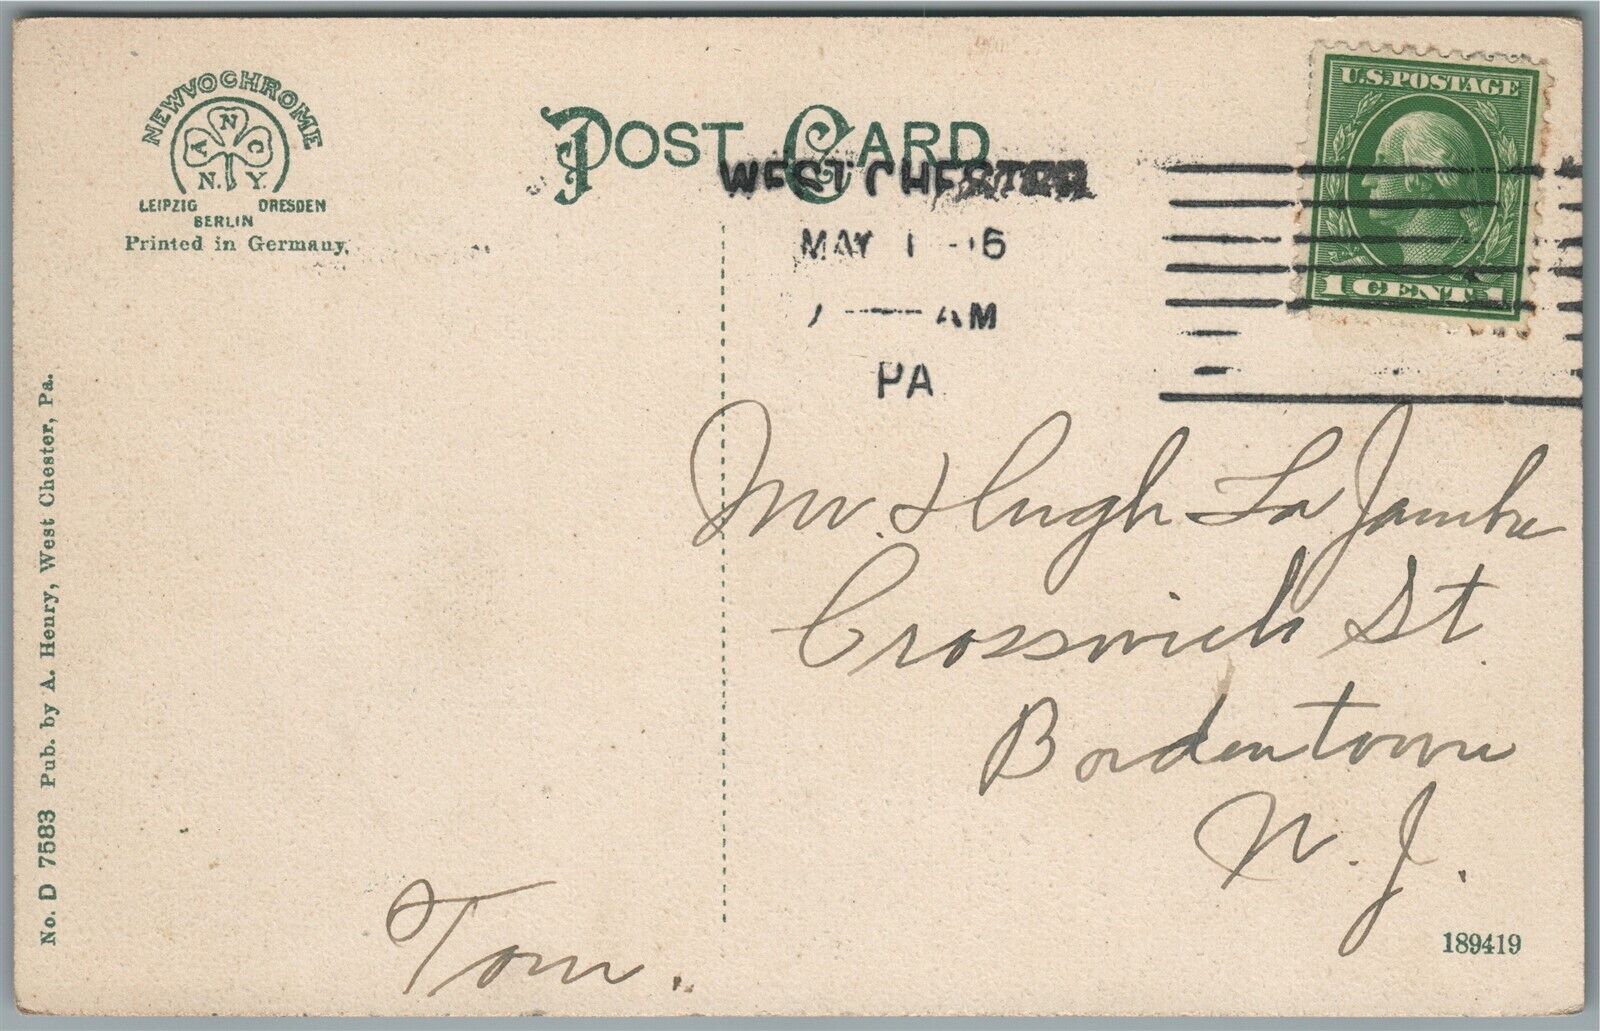 NEWVOCHROME
A N C
N. Y.
LEIPZIG DRESDEN
BERLIN
Printed in Germany.
POST CARD
U.S. POSTAGE
1 CENT 1
WEST CHESTER
MAY 1
AM
PA
Mr. Hugh La Jambre
Crosswich St.
Bordentown
N. J.
Tom.
No. D 7583 Pub. by A. Henry, West Chester, Pa.
189419